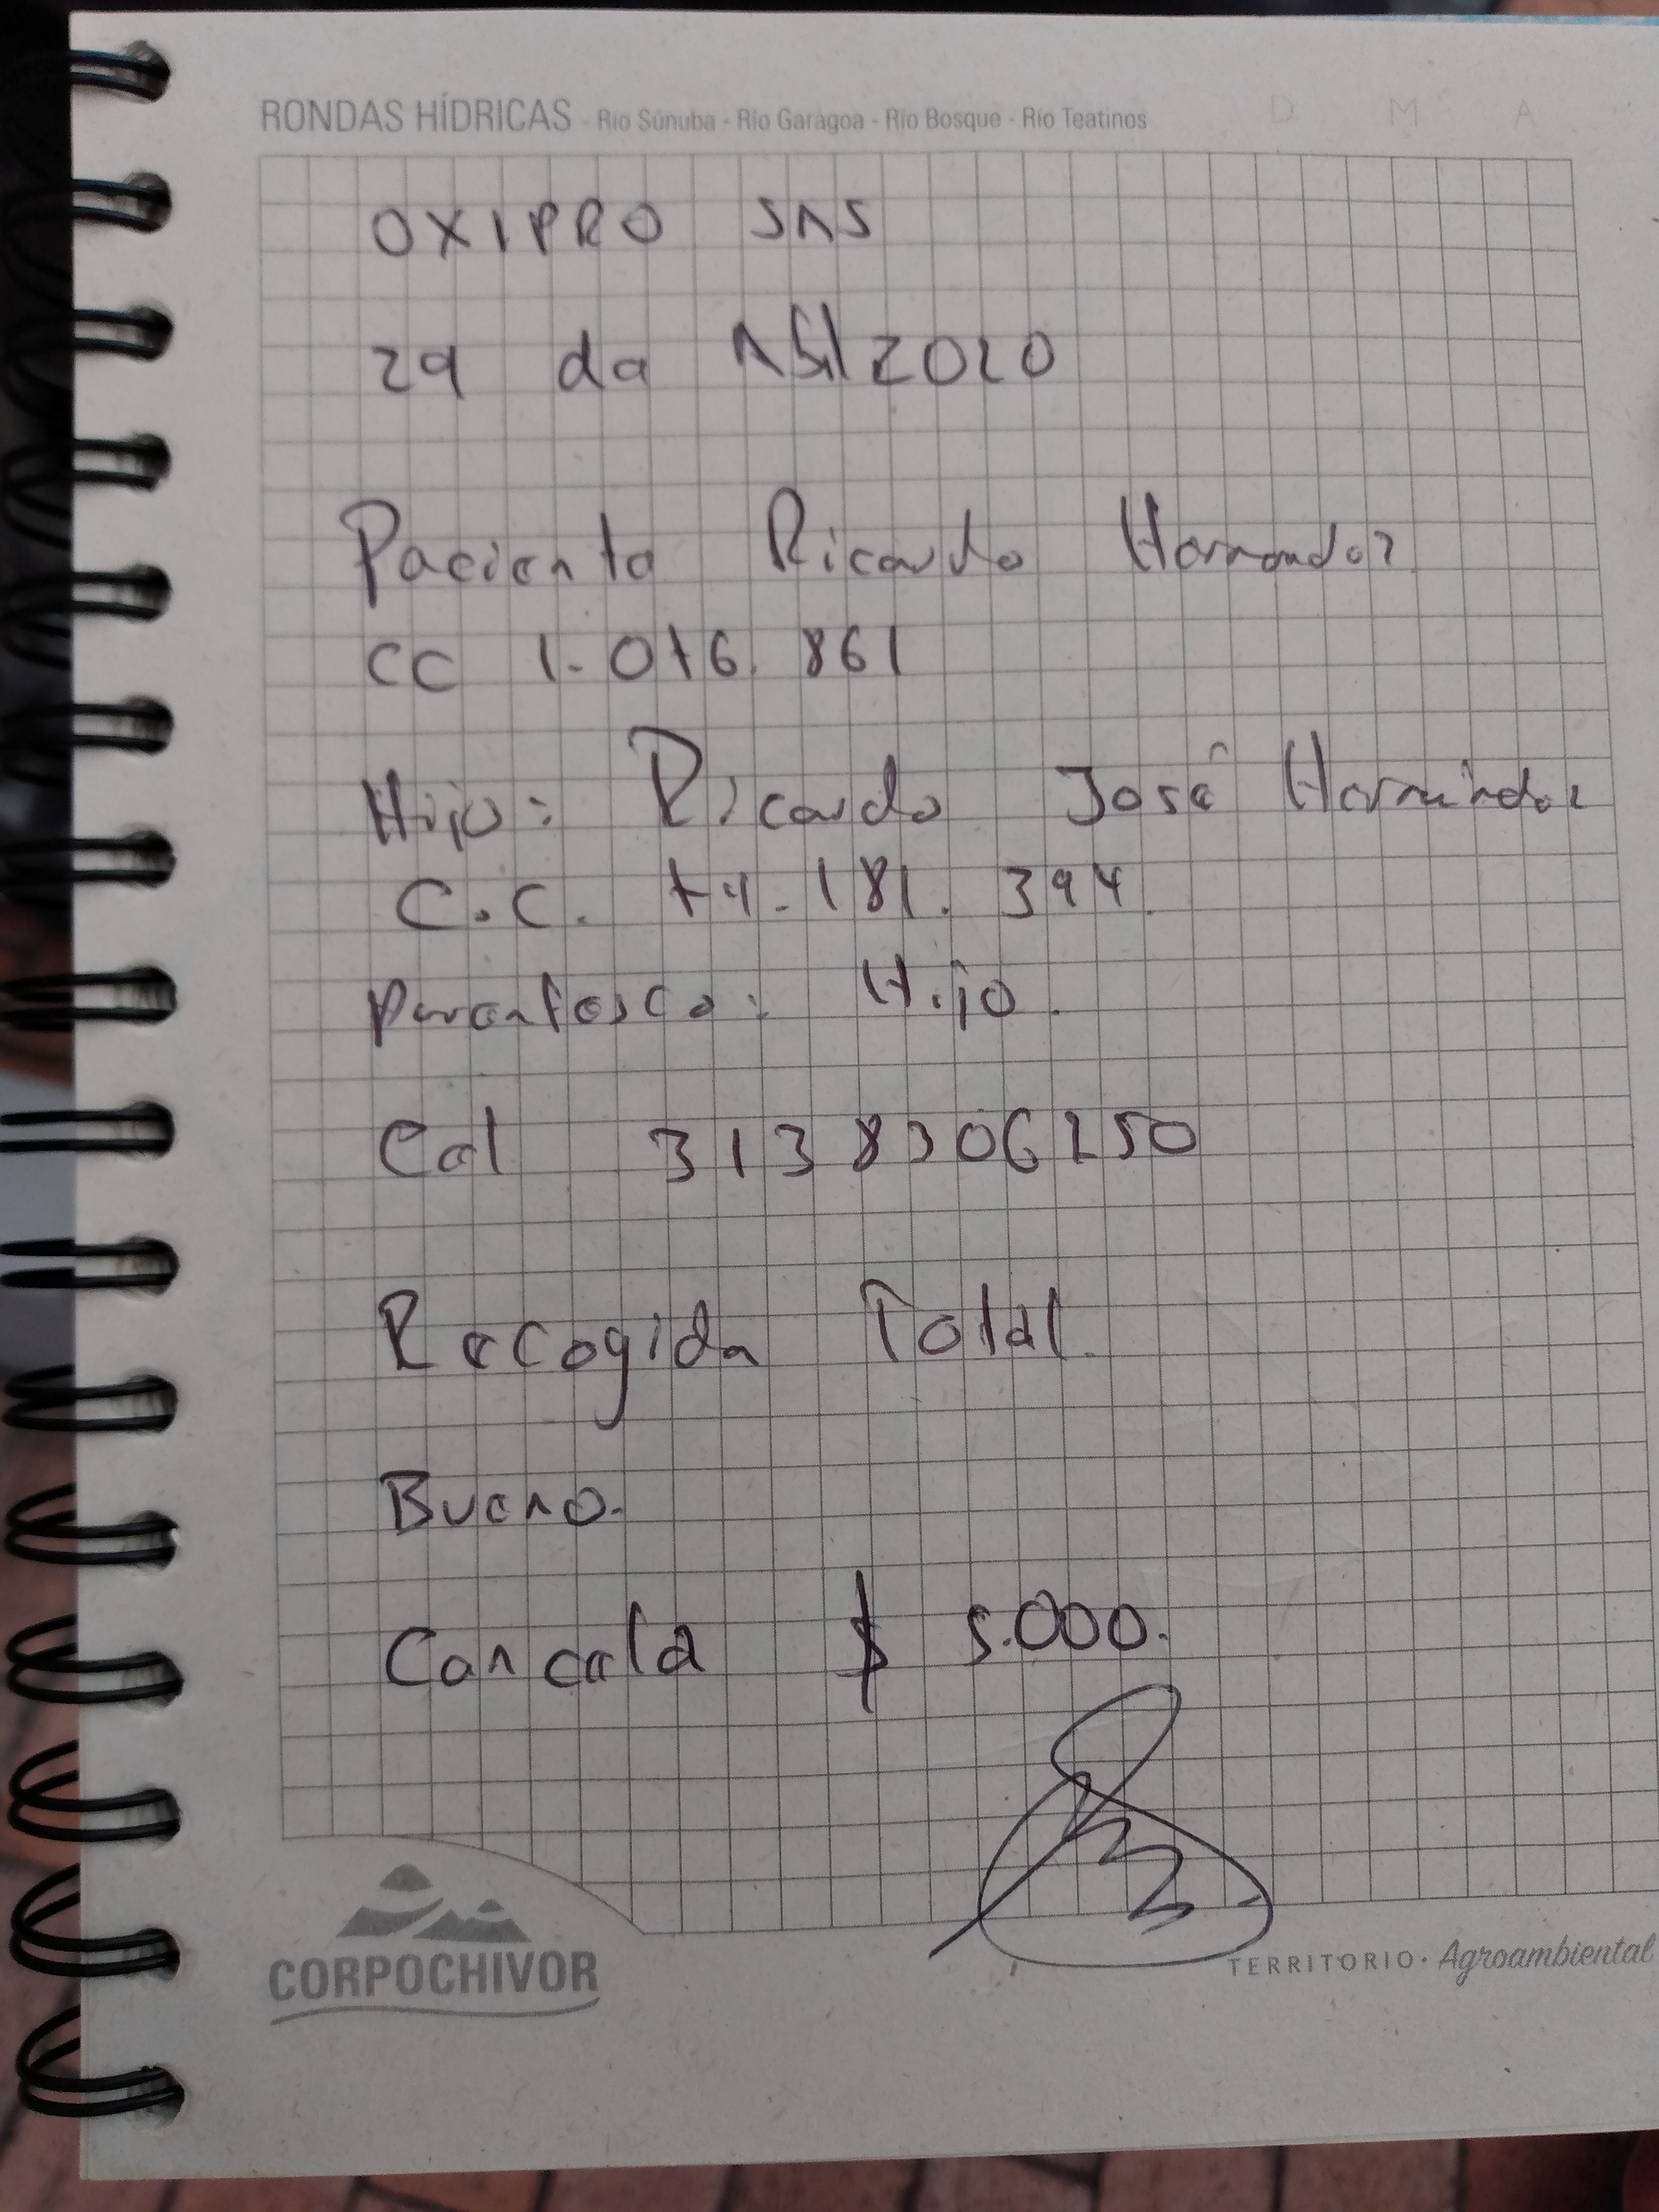 RONDAS HÍDRICAS - Río Súnuba - Río Garagoa - Río Bosque - Río Teatinos D M A
OXIPRO SAS
29 de Abril 2020
Paciente Ricardo Hernandez
CC 1.076.861
Hijo: Ricardo José Hernández
C.C. 74.181.394.
parentesco: Hijo.
Cel 3138306250
Recogida Total.
Bueno.
Cancela $ 5.000.
CORPOCHIVOR
TERRITORIO · Agroambiental